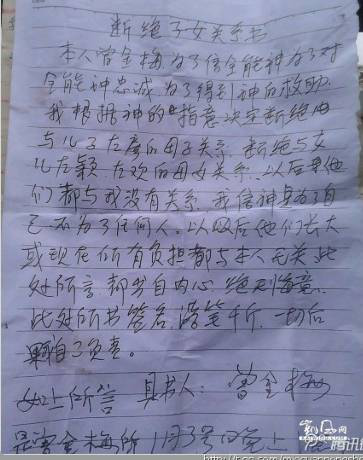 断绝子女关系书
本人曾金梅为了信全能神为了对
全能神忠诚为了得到神的救助
我根据神的指意决定断绝由
与儿子左 的母子关系.断绝与女
儿左颖.左欢的母女关系.以后果他
们都与我没有关系.我信神是为了自
己不为了任何人.以后他们长大
或现在所有负担都与本人无关此
处所言.都出自内心.绝无悔意.
此处所书签名.落笔千斤.一切后
果自己负责.
以上所言 具书人: 曾金梅
是曾金梅所 11月3号 晚上
腾讯